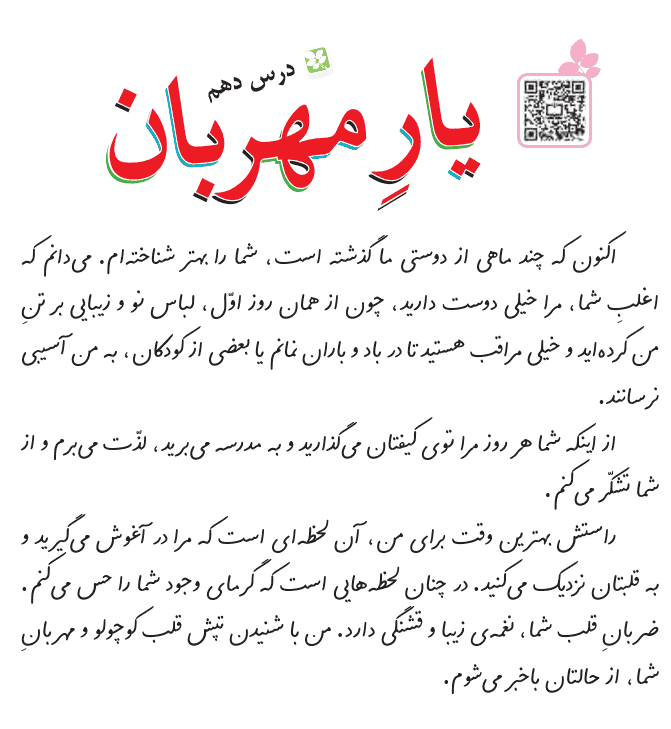 درس دهم
یارِ مهربان
اکنون که چند ماهی از دوستی ما گذشته است، شما را بهتر شناخته‌ام. می‌دانم که
اغلبِ شما، مرا خیلی دوست دارید، چون از همان روز اوّل، لباس نو و زیبایی بر تنِ
من کرده‌اید و خیلی مراقب هستید تا در باد و باران نمانم یا بعضی از کودکان، به من آسیبی
نرسانند.
از اینکه شما هر روز مرا توی کیفتان می‌گذارید و به مدرسه می‌برید، لذّت می‌برم و از
شما تشکّر می‌کنم.
راستش بهترین وقت برای من، آن لحظه‌ای است که مرا در آغوش می‌گیرید و
به قلبتان نزدیک می‌کنید. در چنان لحظه‌هایی است که گرمای وجود شما را حس می‌کنم.
ضربانِ قلب شما، نغمه‌ی زیبا و قشنگی دارد. من با شنیدن تپش قلب کوچولو و مهربانِ
شما، از حالتان باخبر می‌شوم.